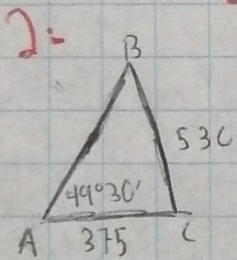 2:-
B
530
49°30'
A 375 C